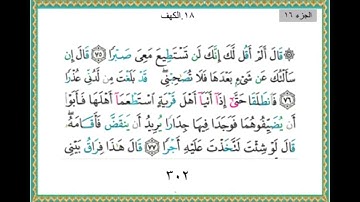 الجزء ١٦
١٨.الكهف
۞ قَالَ أَلَمْ أَقُل لَّكَ إِنَّكَ لَن تَسْتَطِيعَ مَعِىَ صَبْرًا ٧٥ قَالَ إِن
سَأَلْتُكَ عَن شَىْءٍۭ بَعْدَهَا فَلَا تُصَٰحِبْنِى ۖ قَدْ بَلَغْتَ مِن لَّدُنِّى عُذْرًا
٧٦ فَٱنطَلَقَا حَتَّىٰٓ إِذَآ أَتَيَآ أَهْلَ قَرْيَةٍ ٱسْتَطْعَمَآ أَهْلَهَا فَأَبَوْا۟
أَن يُضَيِّفُوهُمَا فَوَجَدَا فِيهَا جِدَارًا يُرِيدُ أَن يَنقَضَّ فَأَقَامَهُۥ ۖ
قَالَ لَوْ شِئْتَ لَتَّخَذْتَ عَلَيْهِ أَجْرًا ٧٧ قَالَ هَٰذَا فِرَاقُ بَيْنِى
٣٠٢